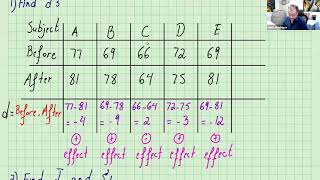 1) Find d's
Subject A B C D E
Before 77 69 66 72 69
After 81 78 64 75 81
d=Before-After 77-81 69-78 66-64 72-75 69-81
=-4 =-9 =2 =-3 =-12
+ + + + +
effect effect effect effect effect